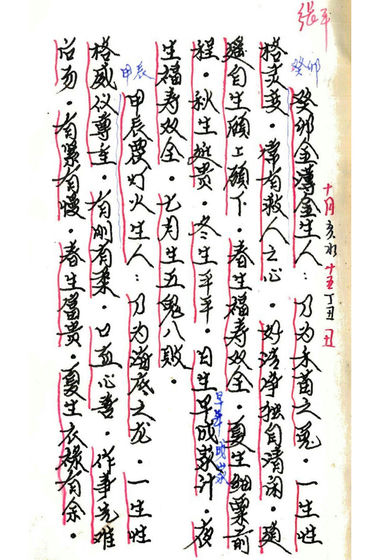 张平
癸卯
十月亥水十五丁丑 丑
癸卯金薄金生人：乃为之兔。一生性
格变。常有救人之心。好清净独自清闲。
遥自生顾上顾下。春生福寿双全。夏生细粟前
程。秋生贵。冬生平平。日生早成家计。夜
早年成家
生福寿双全。七月生五鬼八败。
甲辰
甲辰覆灯火生人：乃为潜底之龙。一生性
格威仪尊重。有刚有柔。口直心善。作事先难
后易。有紧有慢。春生富贵。夏生衣禄有余。